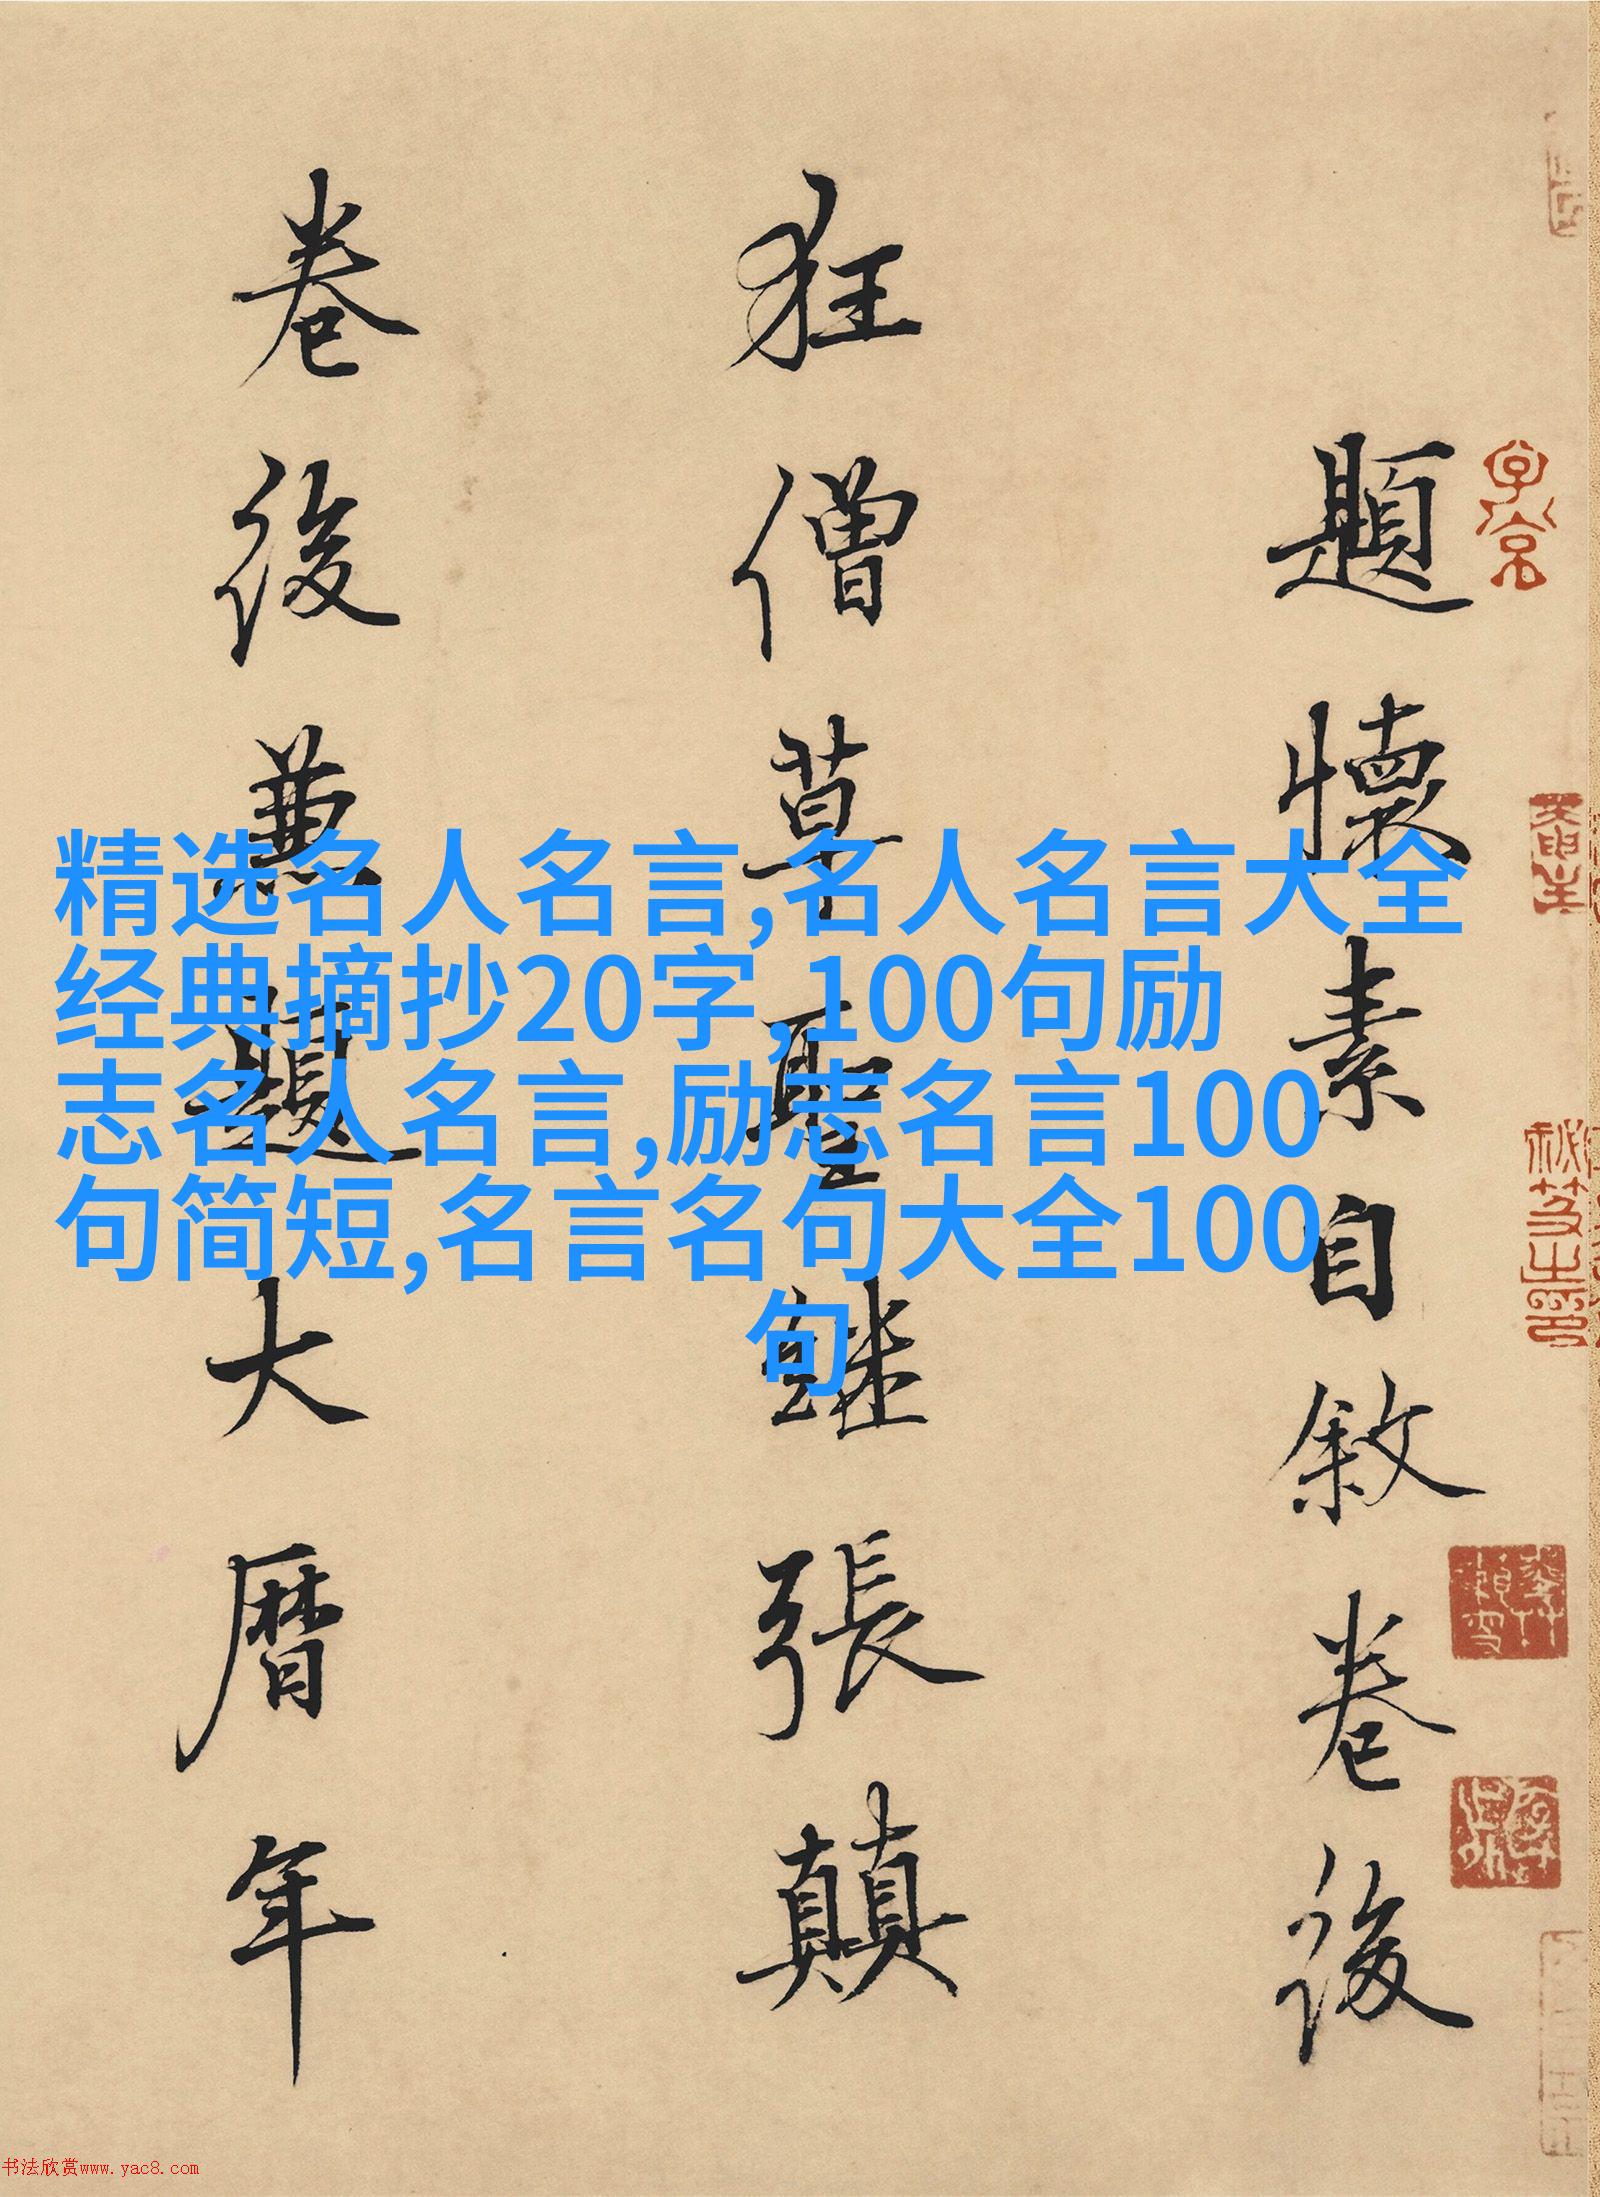 題懷素自敘卷後
狂僧草聖繼張顛
卷後兼題大曆年
精选名人名言,名人名言大全
经典摘抄20字,100句励
志名人名言,励志名言100
句简短,名言名句大全100
句
书法欣赏www.yac8.com